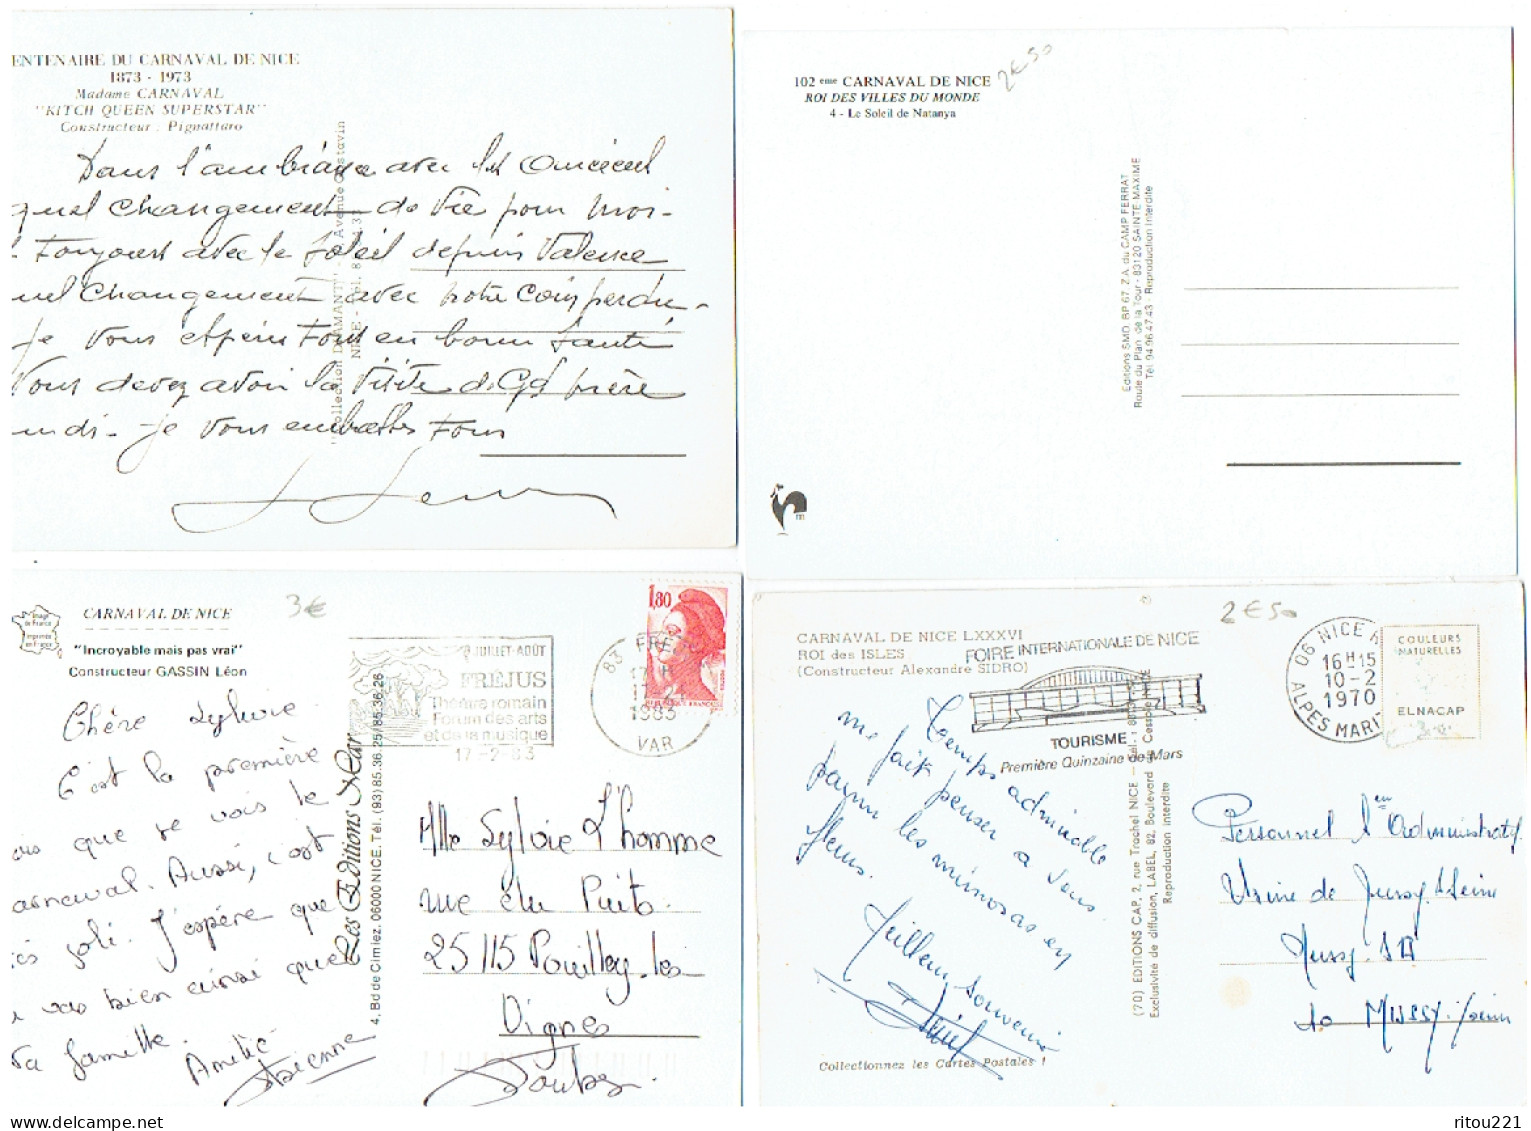 ENTENAIRE DU CARNAVAL DE NICE
1873 - 1973
Madame CARNAVAL
"KITCH QUEEN SUPERSTAR"
Constructeur : Pignattaro
Dans l'ambiance avec les
quel changement de vie pour moi-
Toujours avec le soleil depuis Valence
uel changement avec notre coin perdu-
Je vous espère tous en bonne santé
Vous devez avoir la visite de Gd père
undi - je vous embrasse tous
"Collection DIAMANT" - Avenue Gustavin
NICE - Tél.
102 eme CARNAVAL DE NICE
ROI DES VILLES DU MONDE
4 - Le Soleil de Natanya
2€50
Editions SMD. BP 67. Z.A. du CAMP FERRAT
Route du Plan de la Tour - 83120 SAINTE-MAXIME
Tél. 94.96.47.43 - Reproduction Interdite
m
Image de France
Imprimée en France
CARNAVAL DE NICE
"Incroyable mais pas vrai"
Constructeur GASSIN Léon
3€
Chère Sylvie.
C'est la première
ois que je vois le
arnaval. Aussi, c'est
ès joli. J'espère que
u vas bien ainsi que
ta famille.
Amitié
Les Editions Mar
4, Bd de Cimiez, 06000 NICE. Tél. (93) 85.36.25/85.36.26
JUILLET-AOÛT
FRÉJUS
Théâtre romain
Forum des arts
et de la musique
17-2-83
83 FREJUS
17 H
17 - 2
1983
VAR
1,80
REPUBLIQUE FRANÇAISE
Mlle Sylvie L'homme
rue du Puits
25115 Pouilley-les
Vignes
Doubs.
CARNAVAL DE NICE LXXXVI
ROI des ISLES
(Constructeur Alexandre SIDRO)
2€50
FOIRE INTERNATIONALE DE NICE
TOURISME
Première Quinzaine de Mars
06 NICE
16H15
10-2
1970
ALPES MARIT
COULEURS
NATURELLES
ELNACAP
Temps admirable
me fait penser à vous
parmi les mimosas en
fleurs.
Meilleur souvenir
(70) EDITIONS CAP, 2, rue Trachel NICE - Tél.
Exclusivité de diffusion, LABEL, 82, Boulevard de Cessole NICE
Reproduction interdite
Personnel l'en Administratif
Usine de Mussy s/Seine
Mussy. SA
10 MUSSY. s/Seine
Collectionnez les Cartes Postales !
ritou221